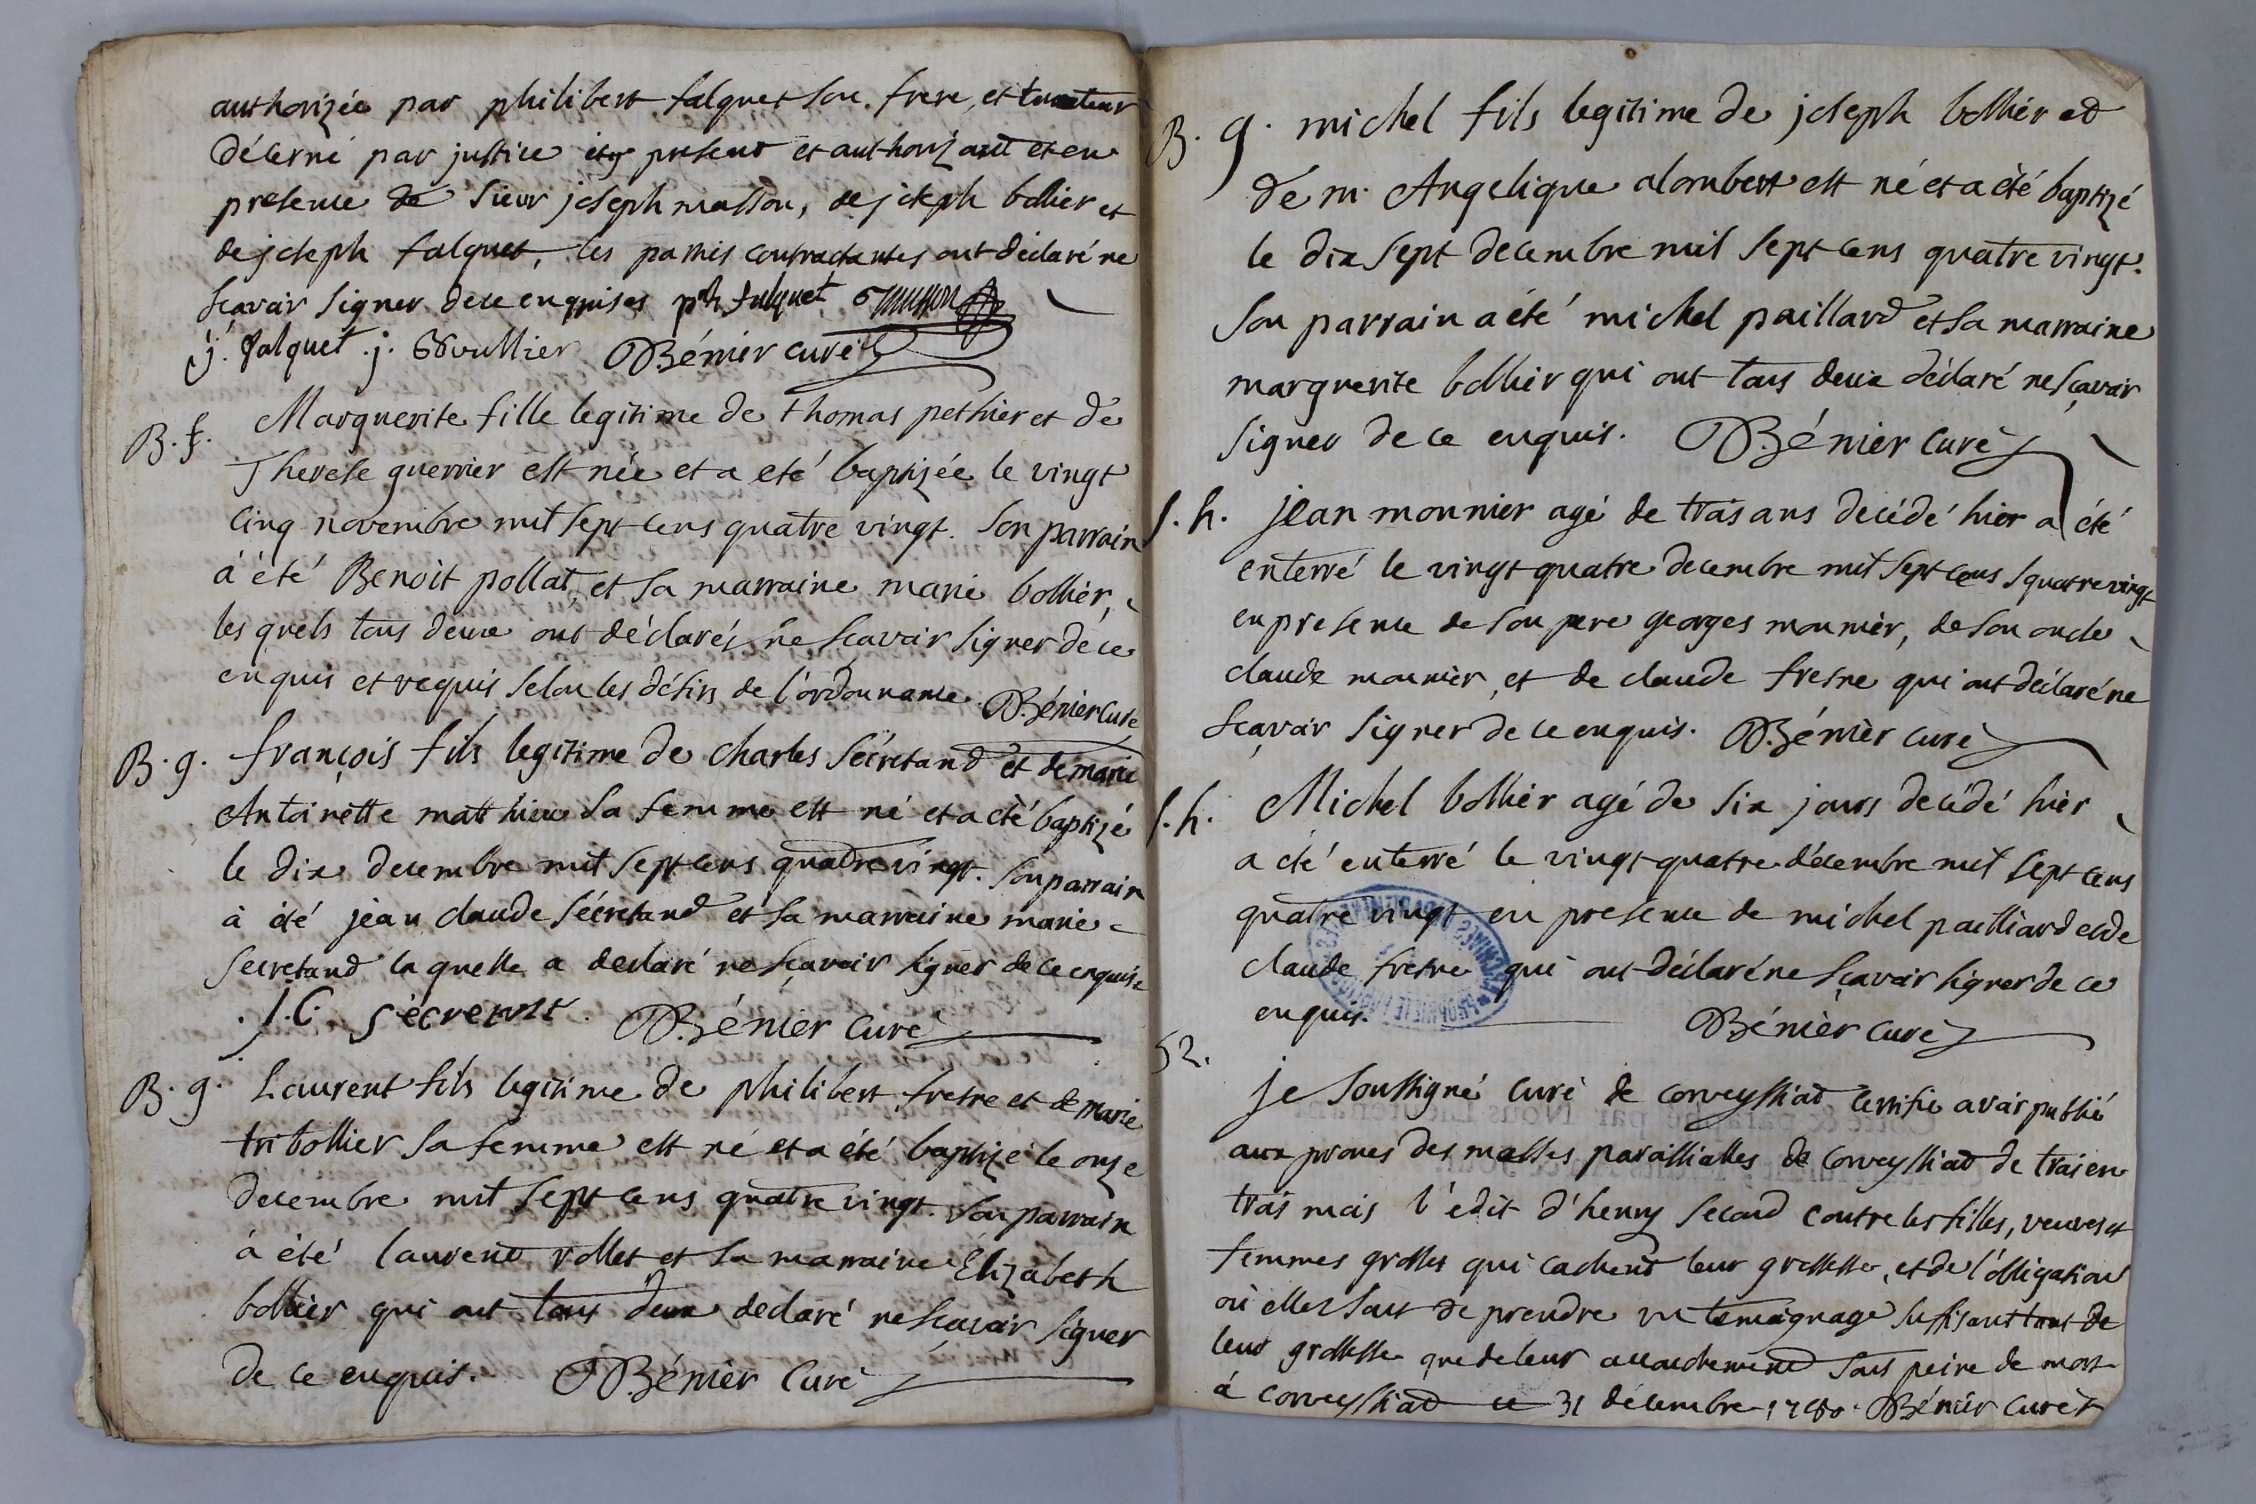 authorizée par philibert falquet son frere, et curateur
décerné par justice icy present et authorizant et en
presence de sieur joseph masson, de joseph bollier et
de joseph falquet, les parties contractantes ont déclaré ne
sçavoir signer de ce enquises ph falquet masson
j. falquet. j. Boullier Bénier curé
B. f. Marguerite fille legitime de thomas pethier et de
Therese guerrier est née et a eté baptizée le vingt
cinq novembre mil sept cens quatre vingt. son parrain
à été Benoit pollat, et sa marraine marie bollier,
les quels tous deux ont déclarés ne scavoir signer de ce
enquis et requis selon les désirs de l'ordonnance. Bénier Curé
B. g. françois fils legitime de charles sécretand et de marie
Antoinette matthieu sa femme est né et a été baptizé
le dix decembre mil sept cens quatre vingt. son parrain
à été jean claude sécretand et sa marraine marie
secretand la quelle a declaré ne sçavoir signer de ce enquise
. j. C. sécretant. Bénier Curé
B. g. Laurent fils legitime de philibert fretre et de marie
tribollier sa femme est né et a été baptizé le onze
decembre mil sept cens quatre vingt. son parrain
à été laurend rollet et sa marraine Elizabeth
bollier qui ont tous deux declaré ne sçavoir signer
de ce enquis. Bénier Curé
B. g. michel fils legitime de joseph bollier et
dé m. Angelique alombert est né et a été baptizé
le dix sept decembre mil sept cens quatre vingt.
son parrain a été michel paillard et sa marraine
marguerite bollier qui ont tous deux déclaré ne sçavoir
signer de ce enquis. Bénier curé
S. h. jean monnier agé de trois ans decédé hier a été
enterré le vingt quatre decembre mil sept cens quatre vingt
en presence de son pere georges monnier, de son oncle
claude monnier, et de claude fretre qui ont déclaré ne
sçavoir signer de ce enquis. Bénier curé
S. h. Michel bollier agé de six jours decédé hier
a été enterré le vingt quatre décembre mil sept cens
quatre vingt en presence de michel pailliard et de
claude fretre qui ont déclaré ne sçavoir signer de ce
enquis. Bénier curé
52.
je soussigné curé de corveyssiat certifie avoir publié
aux prones des messes paroissialles de Corveyssiat de trois en
trois mois l'édit d'henry second contre les filles, veuves et
femmes grosses qui cachent leur grossesse, et de l'obligation
où elles sont de prendre un temoignage suffisant tant de
leur grossesse que de leur accouchement sous peine de mort
à corveyssiat ce 31 décembre 1780. Bénier curé